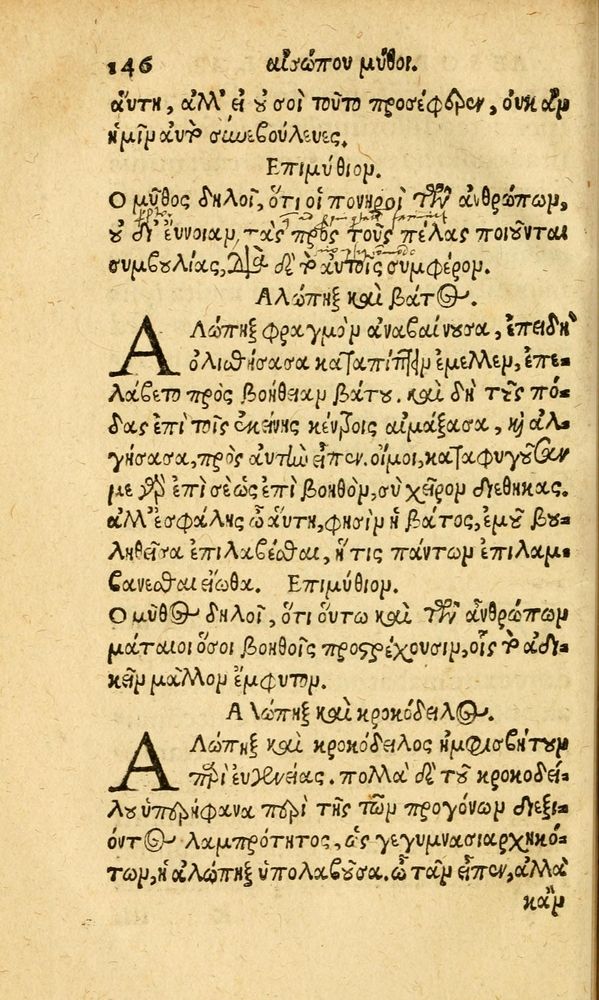 146 αἰσώπου μῦθοι.
αὕτη, ἀλλ' εἰ γε σοὶ τοῦτο προσέφερεν, οὐκ ἂν
ἡμῖν αὐτὸ συνεβούλευες.
Ἐπιμύθιον.
Ὁ μῦθος δηλοῖ, ὅτι οἱ πονηροὶ τῶν ἀνθρώπων,
οὐ δι' εὔνοιαν, τὰς πρὸς τοὺς πέλας ποιοῦνται
συμβουλίας, διὰ δὲ τὸ αὐτοῖς συμφέρον.
Ἀλώπηξ καὶ βάτος.
Ἀλώπηξ φραγμὸν ἀναβαίνουσα, ἐπειδὴ
ὀλισθήσασα καταπίπτειν ἔμελλεν, ἐπε-
λάβετο πρὸς βοήθειαν βάτου. καὶ δὴ τοὺς πό-
δας ἐπὶ τοῖς ἐκείνης κέντροις αἱμάξασα, καὶ ἀλ-
γήσασα, πρὸς αὐτὴν εἶπεν. οἴμοι, καταφυγοῦσαν
με γὰρ ἐπὶ σὲ ὡς ἐπὶ βοηθὸν, σὺ χεῖρον διέθηκας.
ἀλλ' ἐσφάλης ὦ αὕτη, φησὶν ἡ βάτος, ἐμοῦ βου-
ληθεῖσα ἐπιλαβέσθαι, ἥτις πάντων ἐπιλαμ-
βάνεσθαι εἴωθα. Ἐπιμύθιον.
Ὁ μῦθος δηλοῖ, ὅτι οὕτω καὶ τῶν ἀνθρώπων
μάταιοι ὅσοι βοηθοῖς προστρέχουσιν, οἷς τὸ ἀδι-
κεῖν μᾶλλον ἔμφυτον.
Ἀλώπηξ καὶ κροκόδειλος.
Ἀλώπηξ καὶ κροκόδειλος ἠμφισβήτουν
περὶ εὐγενείας. πολλὰ δὲ τοῦ κροκοδεί-
λου ὑπερήφανα περὶ τῆς τῶν προγόνων διεξι-
όντος λαμπρότητος, ὡς γεγυμνασιαρχηκό-
των, ἡ ἀλώπηξ ὑπολαβοῦσα. ὦ τᾶν εἶπεν, ἀλλὰ
κἂν